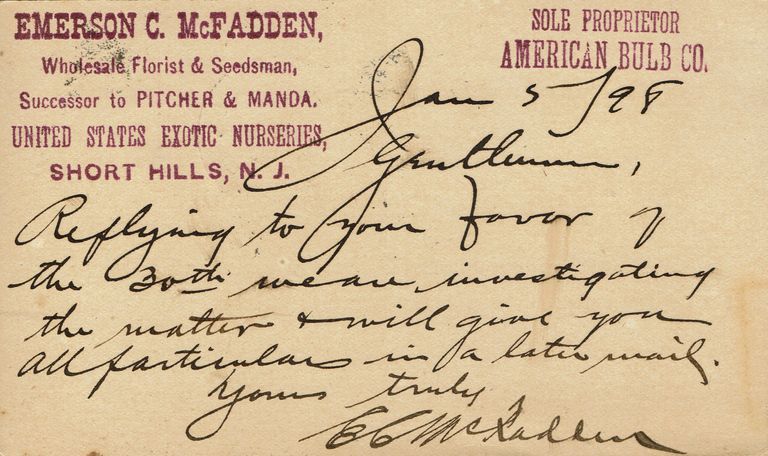 EMERSON C. McFADDEN,
Wholesale Florist & Seedsman,
Successor to PITCHER & MANDA.
UNITED STATES EXOTIC NURSERIES,
SHORT HILLS, N. J.
SOLE PROPRIETOR
AMERICAN BULB CO.
Jan 5/98
Gentlemen,
Replying to your favor of
the 30th we are investigating
the matter & will give you
all particulars in a later mail.
Yours truly
E C McFadden